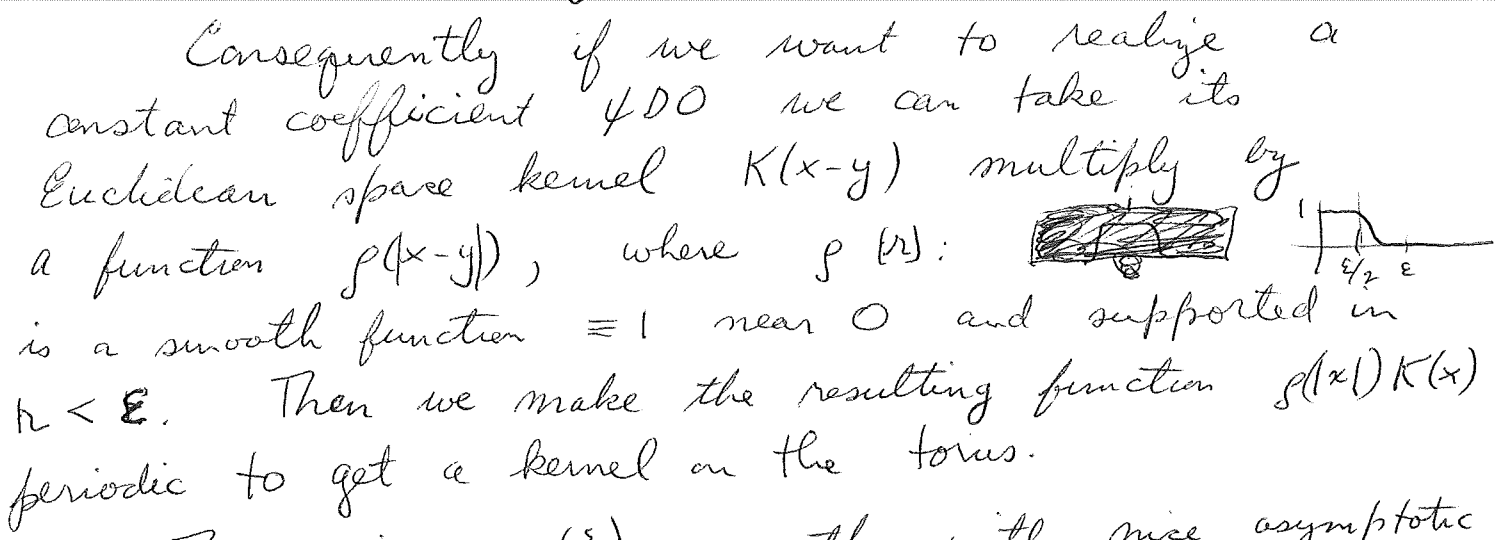 Consequently if we want to realize a
constant coefficient ψDO we can take its
Euclidean space kernel K(x-y) multiply by
a function ρ(|x-y|), where ρ(r): 1 ε/2 ε
is a smooth function ≡ 1 near 0 and supported in
r < ε. Then we make the resulting function ρ(|x|)K(x)
periodic to get a kernel on the torus.
nice asymptotic